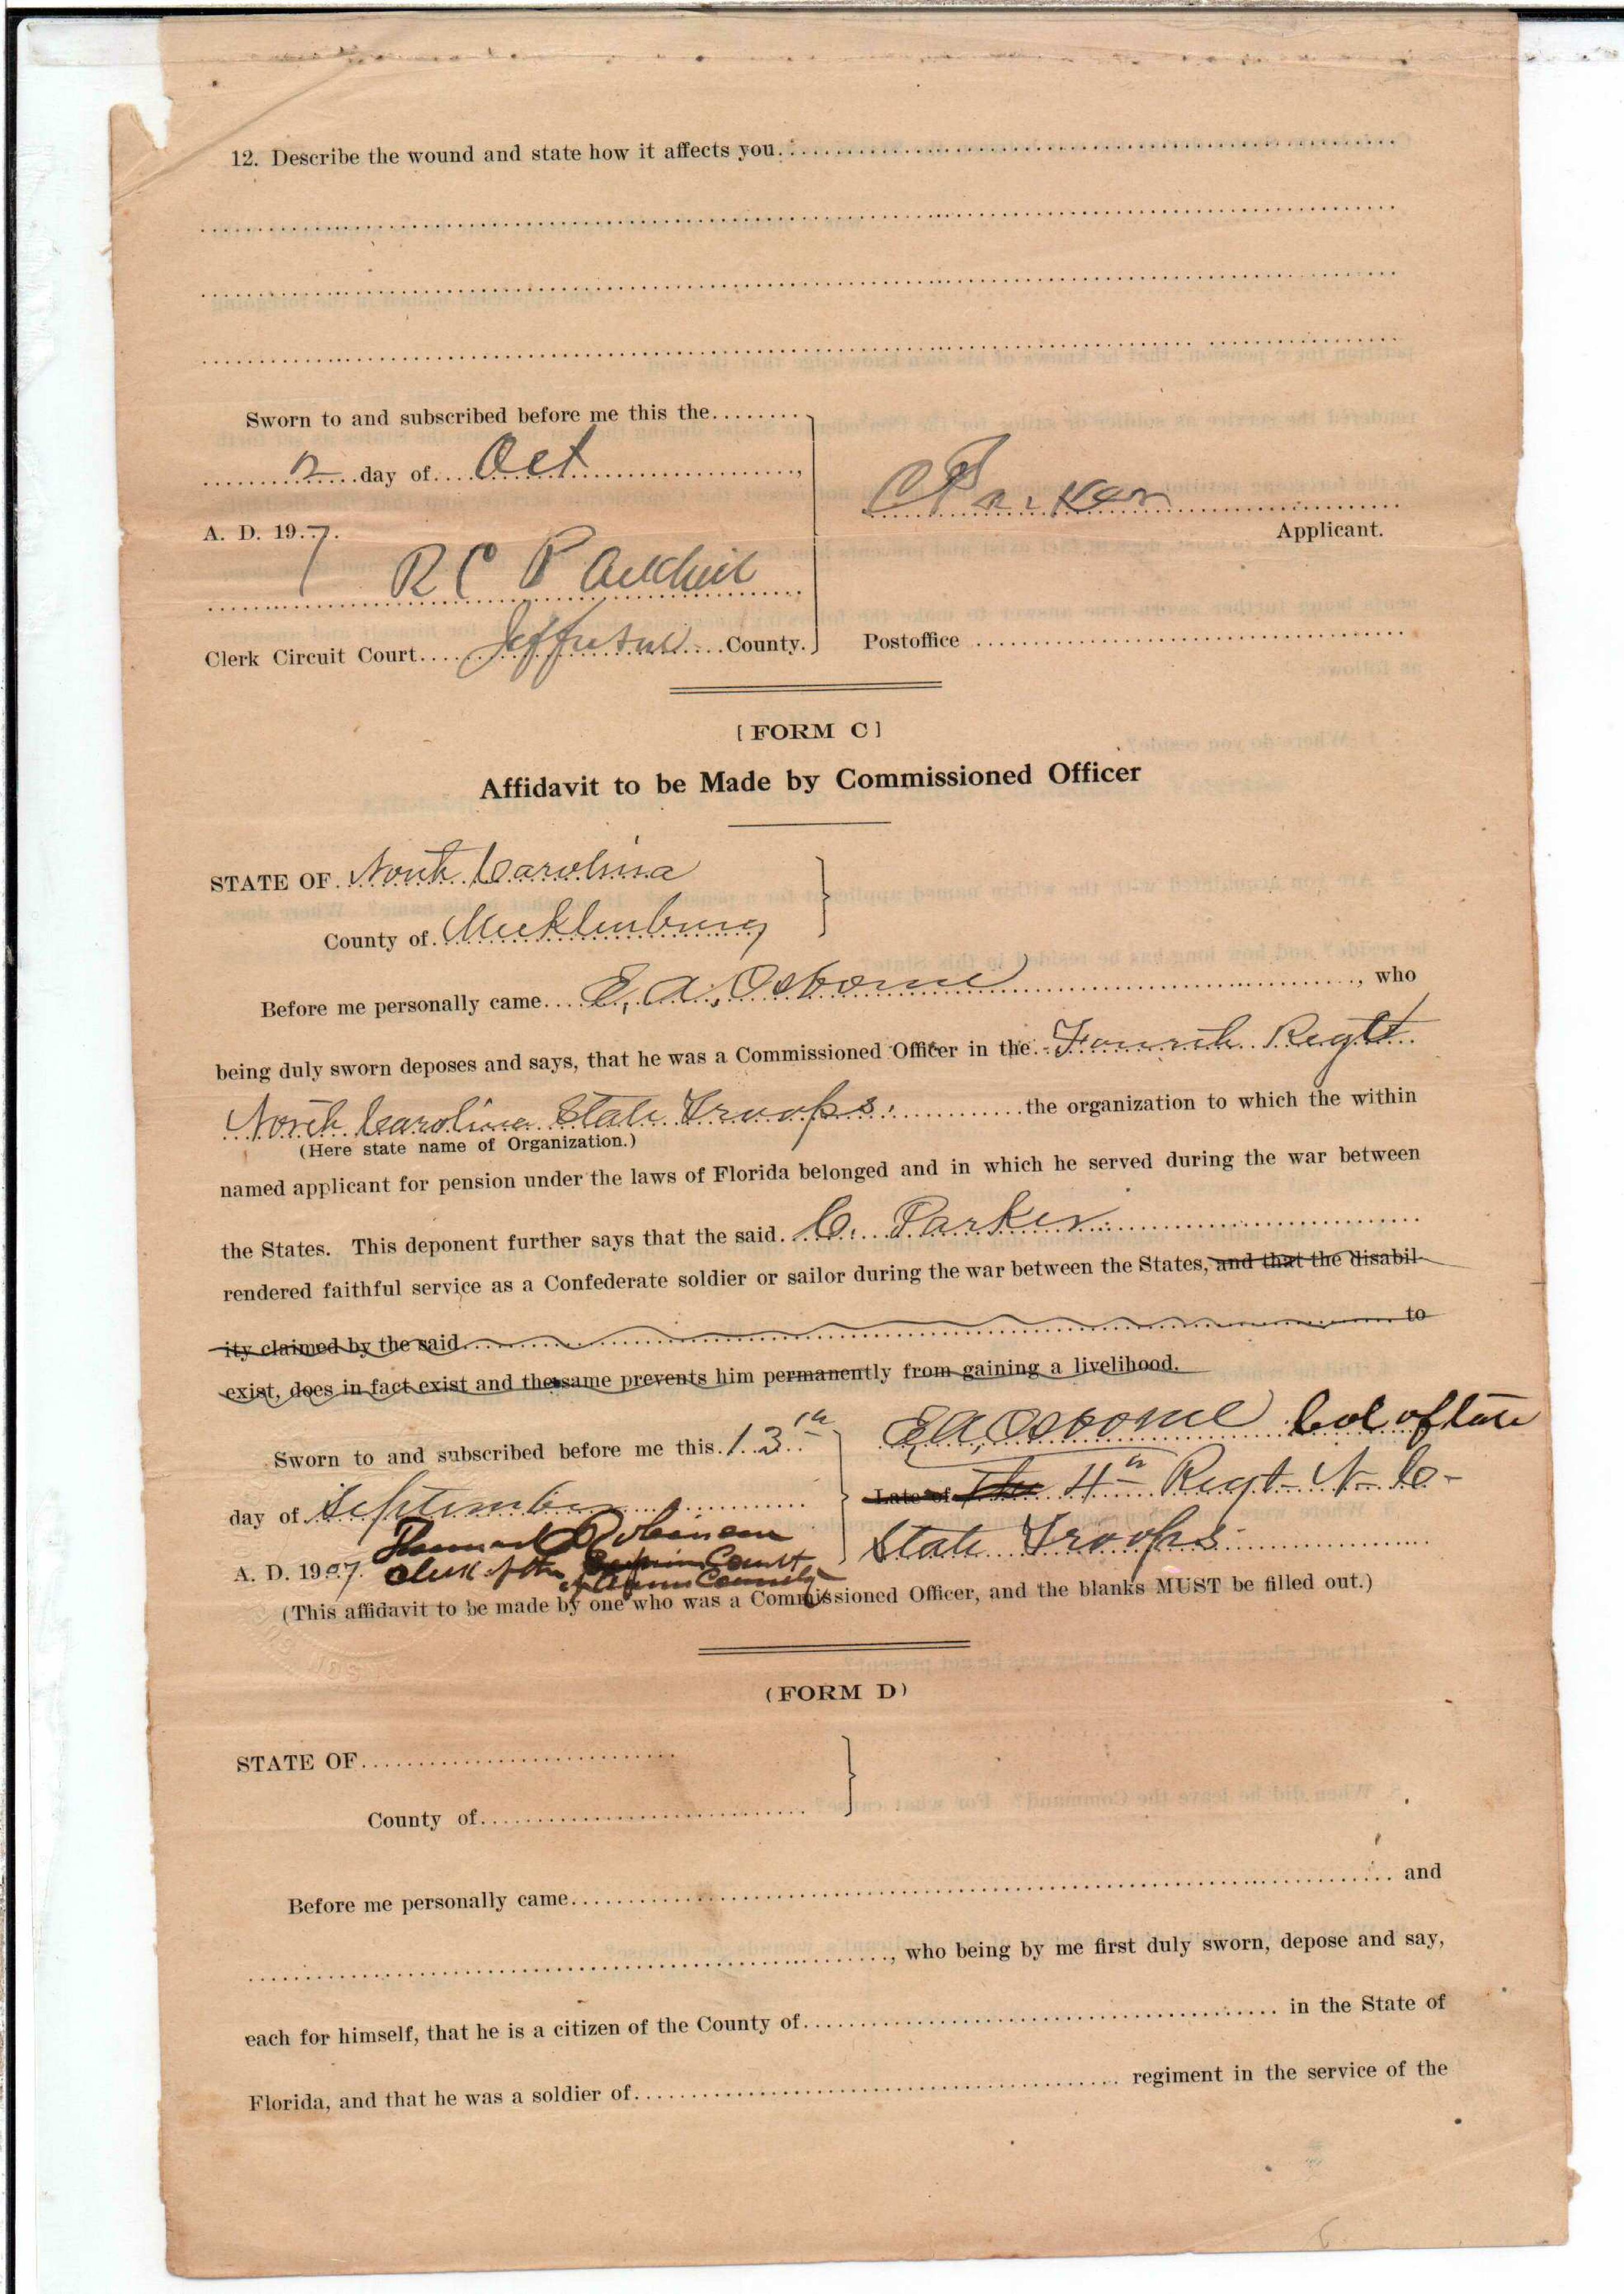 12. Describe the wound and state how it affects you.
Sworn to and subscribed before me this the
2 day of Oct
A. D. 19 7.
C Parker
Applicant.
R C P
Clerk Circuit Court Jefferson County.
Postoffice
[FORM C]
Affidavit to be Made by Commissioned Officer
STATE OF North Carolina
County of Mecklenburg
Before me personally came E. A. Osborne, who
being duly sworn deposes and says, that he was a Commissioned Officer in the Fourth Regt
North Carolina State Troops. the organization to which the within
(Here state name of Organization.)
named applicant for pension under the laws of Florida belonged and in which he served during the war between
the States. This deponent further says that the said C. Parker
rendered faithful service as a Confederate soldier or sailor during the war between the States, and that the disabil-
ity claimed by the said to
exist, does in fact exist and the same prevents him permanently from gaining a livelihood.
Sworn to and subscribed before me this 13th
E A Osborne Col of late
day of September
Late of The 4th Regt N. C.
A. D. 1907.
State Troops
Clerk of the Superior Court
County
(This affidavit to be made by one who was a Commissioned Officer, and the blanks MUST be filled out.)
(FORM D)
STATE OF
County of
Before me personally came and
, who being by me first duly sworn, depose and say,
each for himself, that he is a citizen of the County of in the State of
Florida, and that he was a soldier of regiment in the service of the